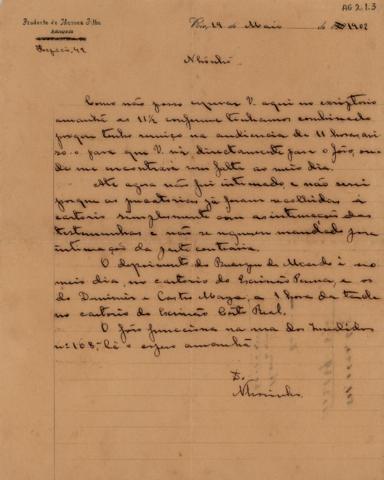 AG 2.1.3
Prudente de Moraes Filho
Advogado
Rio, 19 de Maio de 1902
Nhônhô
Como não posso esperar V. aqui no escriptorio
amanhã as 11½ conforme tinhamos combinado
porque tenho serviço na audiencia de 11 horas, avi-
so-o para que V. vá directamente para o fôro, on-
de me encontrará sem falta ao meio dia.
Até agora não fui intimado, e não serei
porque as precatorias já foram recolhidas a
cartorio simplesmente com as intimações das
testemunhas e não se requereu mandado para
intimação da parte contraria.
O depoimento do Buarque de Macedo é ao
meio dia, no cartorio do Escrivão Penna, e os
do Diniz e Castro Maya, a 1 hora da tarde
no cartorio do Escrivão Côrte Real.
O fôro funcciona na rua dos Invalidos
nº 108. Lá o espero amanhã.
Do